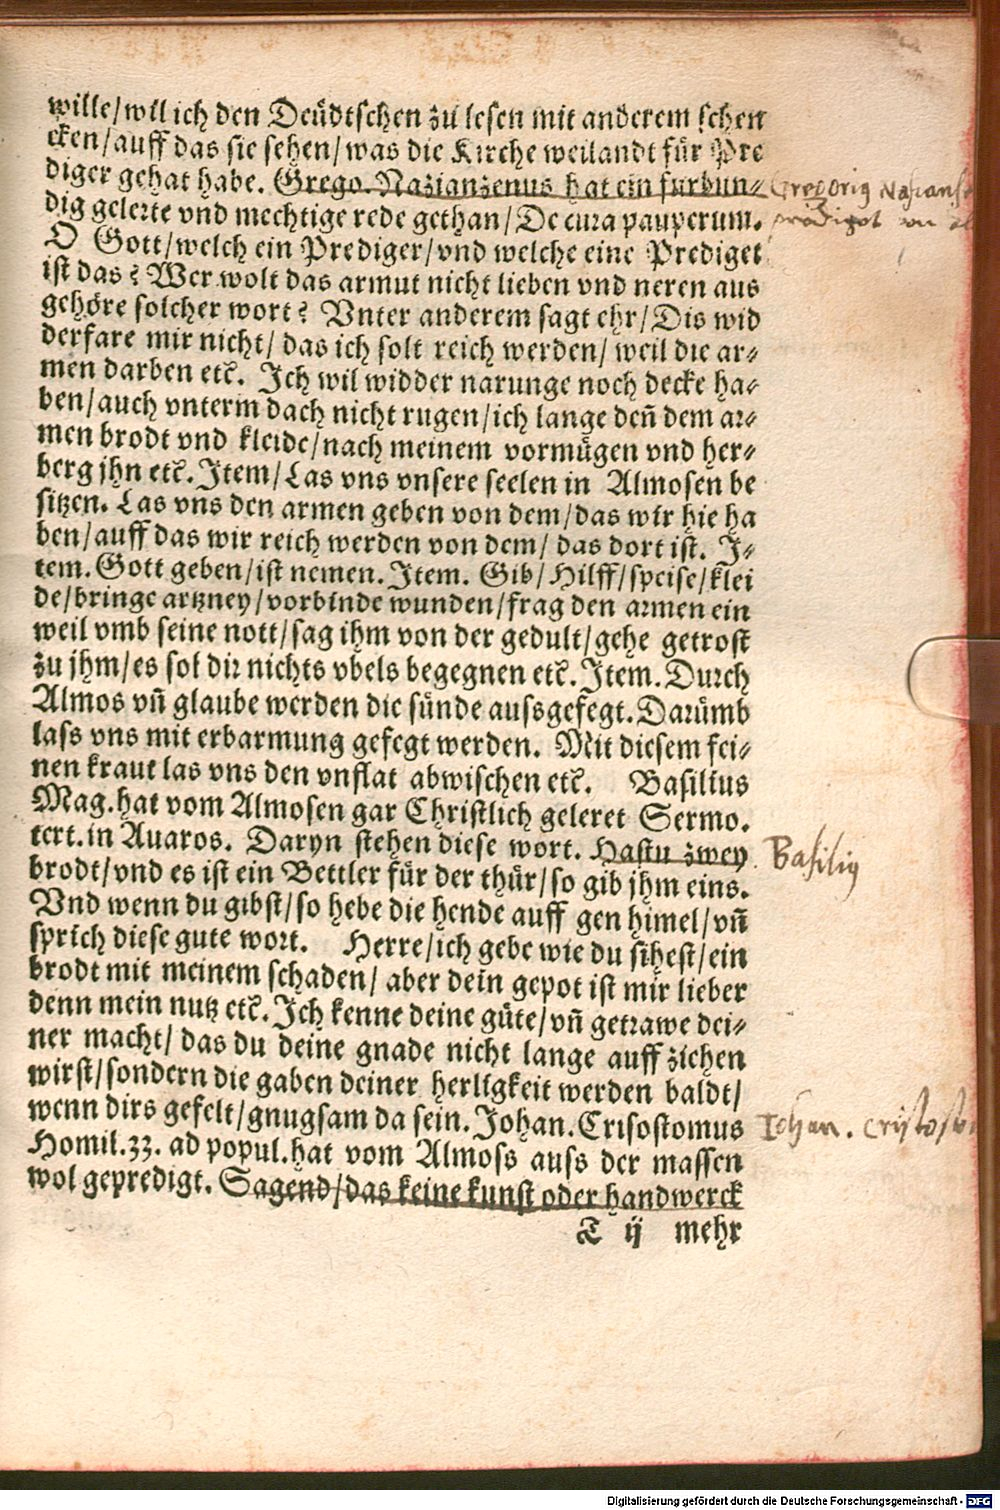 wille/wil ich den Deüdtschen zu lesen mit anderem schen
cken/auff das sie sehen/was die Kirche weilandt für Pre
diger gehat habe. Grego. Nazianzenus hat ein fürbün⸗
dig gelerte vnd mechtige rede gethan/De cura pauperum.
O Gott/welch ein Prediger/vnd welche eine Prediget
ist das? Wer wolt das armut nicht lieben vnd neren aus
gehöre solcher wort? Vnter anderem sagt ehr/Dis wid
derfare mir nicht/das ich solt reich werden/weil die ar⸗
men darben etc. Ich wil widder narunge noch decke ha⸗
ben/auch vnterm dach nicht rugen/ich lange deñ dem ar⸗
men brodt vnd kleide/nach meinem vormügen vnd her⸗
berg jhn etc. Item/Las vns vnsere seelen in Almosen be
sitzen. Las vns den armen geben von dem/das wir hie ha
ben/auff das wir reich werden von dem/das dort ist. I⸗
tem. Gott geben/ist nemen. Item. Gib/Hilff/speise/klei
de/bringe artzney/vorbinde wunden/frag den armen ein
weil vmb seine nott/sag ihm von der gedult/gehe getrost
zu jhm/es sol dir nichts vbels begegnen etc. Item. Durch
Almos vñ glaube werden die sünde aussgefegt. Darümb
lass vns mit erbarmung gefegt werden. Mit diesem fei⸗
nen kraut las vns den vnflat abwischen etc. Basilius
Mag. hat vom Almosen gar Christlich geleret Sermo.
tert. in Auaros. Daryn stehen diese wort. Hastu zwey
brodt/vnd es ist ein Bettler für der thür/so gib jhm eins.
Vnd wenn du gibst/so hebe die hende auff gen himel/vñ
sprich diese gute wort. Herre/ich gebe wie du sihest/ein
brodt mit meinem schaden/aber dein gepot ist mir lieber
denn mein nutz etc. Ich kenne deine güte/vñ getrawe dei⸗
ner macht/das du deine gnade nicht lange auff zichen
wirst/sondern die gaben deiner herligkeit werden baldt/
wenn dirs gefelt/gnugsam da sein. Johan. Crisostomus
Homil. 33. ad popul. hat vom Almoss auss der massen
wol gepredigt. Sagend/das keine kunst oder handwerck
T ij mehr
Gregoriq
Basiliq
Iohan. Cristosto
Digitalisierung gefördert durch die Deutsche Forschungsgemeinschaft - DFG